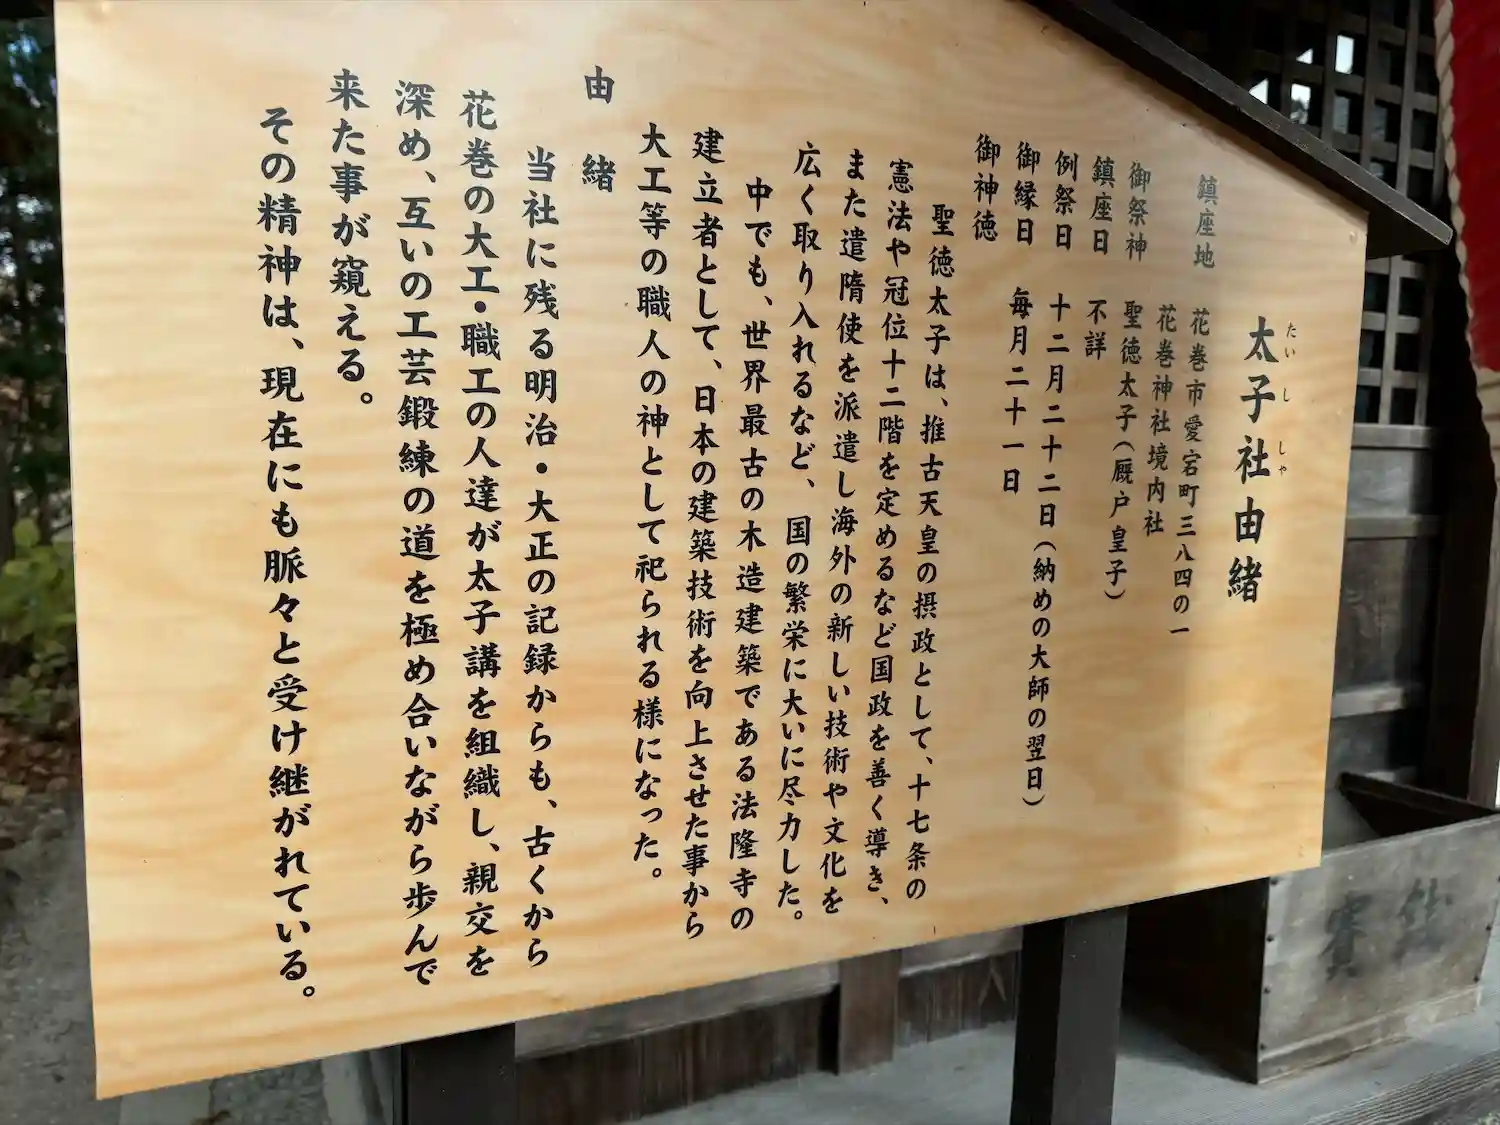 太子社由緒
たいししゃ
鎮座地 花巻市愛宕町三八四の一
花巻神社境内社
御祭神 聖徳太子(厩戸皇子)
鎮座日 不詳
例祭日 十二月二十二日(納めの大師の翌日)
御縁日 毎月二十一日
御神徳
聖徳太子は、推古天皇の摂政として、十七条の
憲法や冠位十二階を定めるなど国政を善く導き、
また遣隋使を派遣し海外の新しい技術や文化を
広く取り入れるなど、国の繁栄に大いに尽力した。
中でも、世界最古の木造建築である法隆寺の
建立者として、日本の建築技術を向上させた事から
大工等の職人の神として祀られる様になった。
由緒
当社に残る明治・大正の記録からも、古くから
花巻の大工・職工の人達が太子講を組織し、親交を
深め、互いの工芸鍛練の道を極め合いながら歩んで
来た事が窺える。
その精神は、現在にも脈々と受け継がれている。